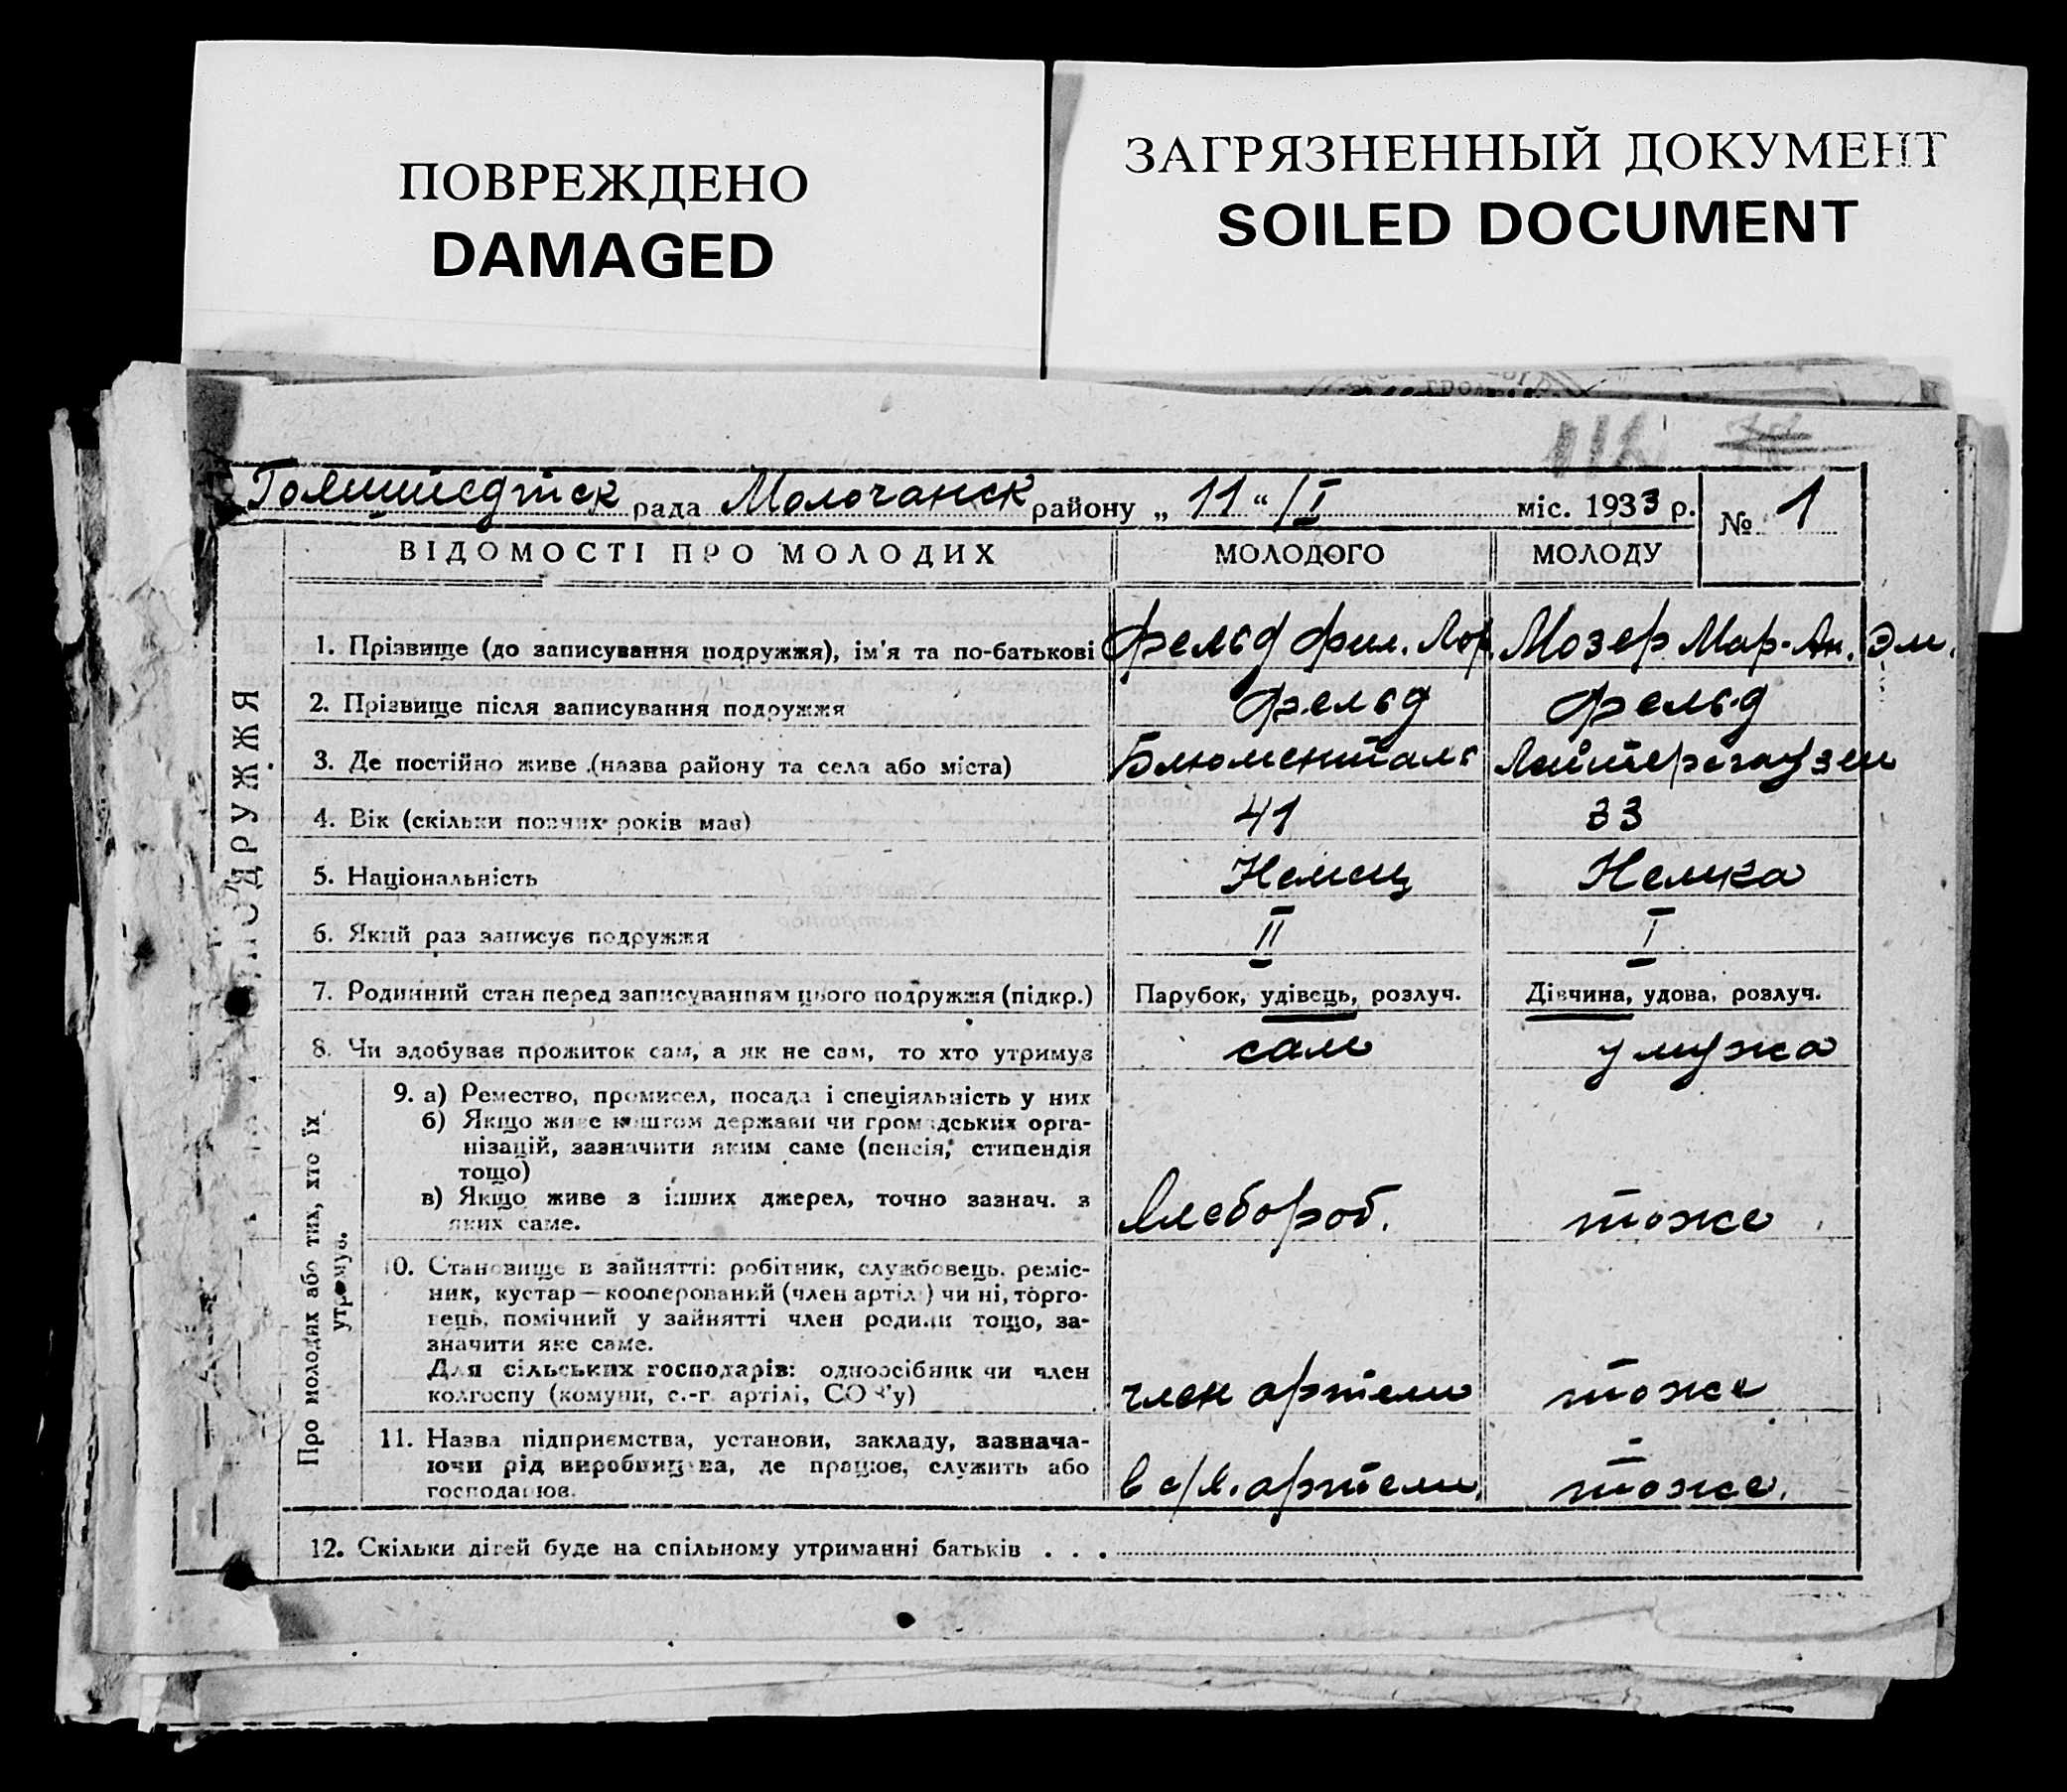 ПОВРЕЖДЕНО
DAMAGED
ЗАГРЯЗНЕННЫЙ ДОКУМЕНТ
SOILED DOCUMENT
рада Молочанск району „ 11 “ / I міс. 1933 р. № 1
ВІДОМОСТІ ПРО МОЛОДИХ МОЛОДОГО МОЛОДУ
ПОДРУЖЖЯ
1. Прізвище (до записування подружжя), ім'я та по-батькові Фельд Фил. Лор. Мозер Мар-Ан. Эм.
2. Прізвище після записування подружжя Фельд Фельд
3. Де постійно живе (назва району та села або міста) Блюменталь Лейтерсгаузен
4. Вік (скільки повних років має) 41 33
5. Національність Немец Немка
6. Який раз записує подружжя II I
7. Родинний стан перед записуванням цього подружжя (підкр.) Парубок, удівець, розлуч. Дівчина, удова, розлуч.
8. Чи здобував прожиток сам, а як не сам, то хто утримує сам у мужа
Про молодих або тих, хто їх
утримує.
9. а) Ремество, промисел, посада і спеціяльність у них
б) Якщо живе коштом держави чи громадських орга-
нізацій, зазначити яким саме (пенсія, стипендія
тощо)
в) Якщо живе з інших джерел, точно зазнач. з
яких саме. Хлебороб. тоже
10. Становище в зайнятті: робітник, службовець, реміс-
ник, кустар — кооперований (член артілі) чи ні, торго-
вець, помічний у зайнятті член родини тощо, за-
значити яке саме.
Для сільських господарів: одноосібник чи член
колгоспу (комуни, с.-г. артілі, СОЗ'у) член артели тоже
11. Назва підприємства, установи, закладу, зазнача-
ючи рід виробництва, де працює, служить або
господарює. в с/х. артели. тоже.
12. Скільки дітей буде на спільному утриманні батьків . . .